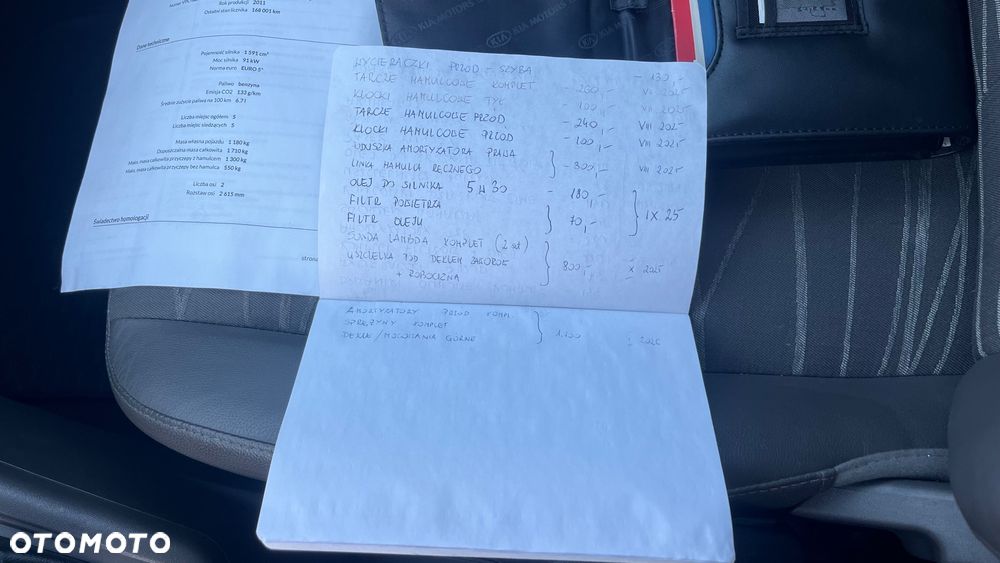 Rok produkcji 2011
Ostatni stan licznika 168 001 km
Dane techniczne
Pojemność silnika 1 591 cm³
Moc silnika 91 kW
Norma euro EURO 5
Paliwo benzyna
Emisja CO2 133 g/km
Średnie zużycie paliwa na 100 km 6,7 l
Liczba miejsc ogółem 5
Liczba miejsc siedzących 5
Masa własna pojazdu 1 180 kg
Dopuszczalna masa całkowita 1 710 kg
Maks. masa całkowita przyczepy z hamulcem 1 300 kg
Maks. masa całkowita przyczepy bez hamulca 550 kg
Liczba osi 2
Rozstaw osi 2 615 mm
Świadectwo homologacji
strona
KIA MOTORS
WYCIERACZKI PRZOD - SZYBA - 130,-
TARCZE HAMULCOWE KOMPLET - 200,- 2025
KLOCKI HAMULCOWE TYŁ - 100,- VII 2025
TARCZE HAMULCOWE PRZÓD - 240,- VIII 2025
KLOCKI HAMULCOWE PRZÓD - 100,- VIII 2025
PODUSZKA AMORTYZATORA PRAWA
LINKA HAMULCA RĘCZNEGO - 300,- VIII 2025
OLEJ DO SILNIKA 5W30 - 180,-
FILTR POWIETRZA
FILTR OLEJU 70,- IX 25
SONDA LAMBDA KOMPLET (2 szt)
USZCZELKA POD DEKLEM ZAWORÓW 800,- X 2025
+ ROBOCIZNA
AMORTYZATORY PRZOD KOMPL
SPRĘŻYNY KOMPLET
DEKLE/MOCOWANIA GÓRNE 1.100 I 2026
OTOMOTO